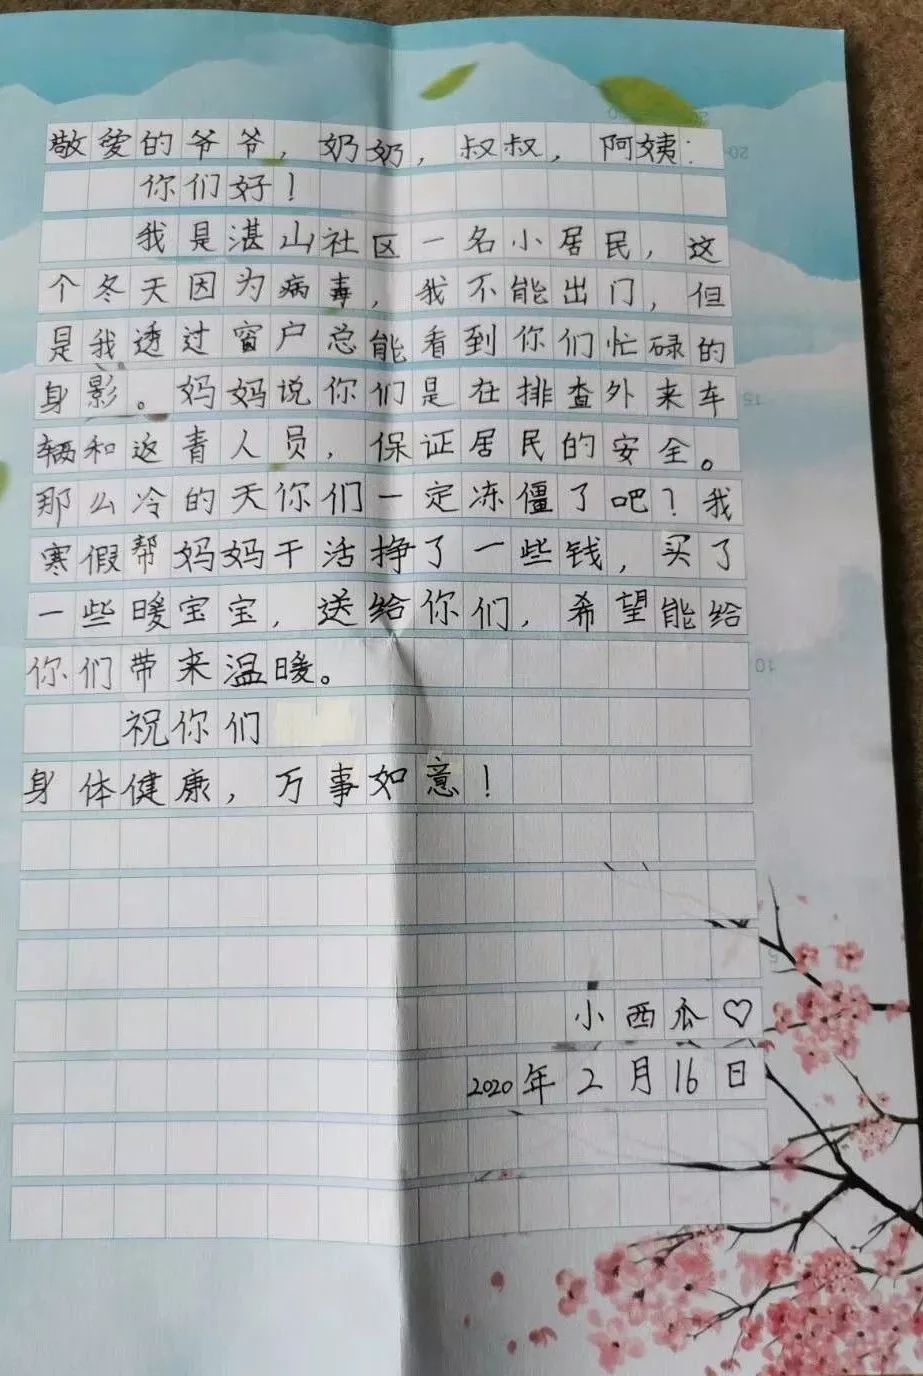 敬爱的爷爷，奶奶，叔叔，阿姨：
你们好！
我是湛山社区一名小居民，这
个冬天因为病毒，我不能出门，但
是我透过窗户总能看到你们忙碌的
身影。妈妈说你们是在排查外来车
辆和返青人员，保证居民的安全。
那么冷的天你们一定冻僵了吧？我
寒假帮妈妈干活挣了一些钱，买了
一些暖宝宝，送给你们，希望能给
你们带来温暖。
祝你们
身体健康，万事如意！
小西瓜♡
2020年2月16日
20
15
10
5